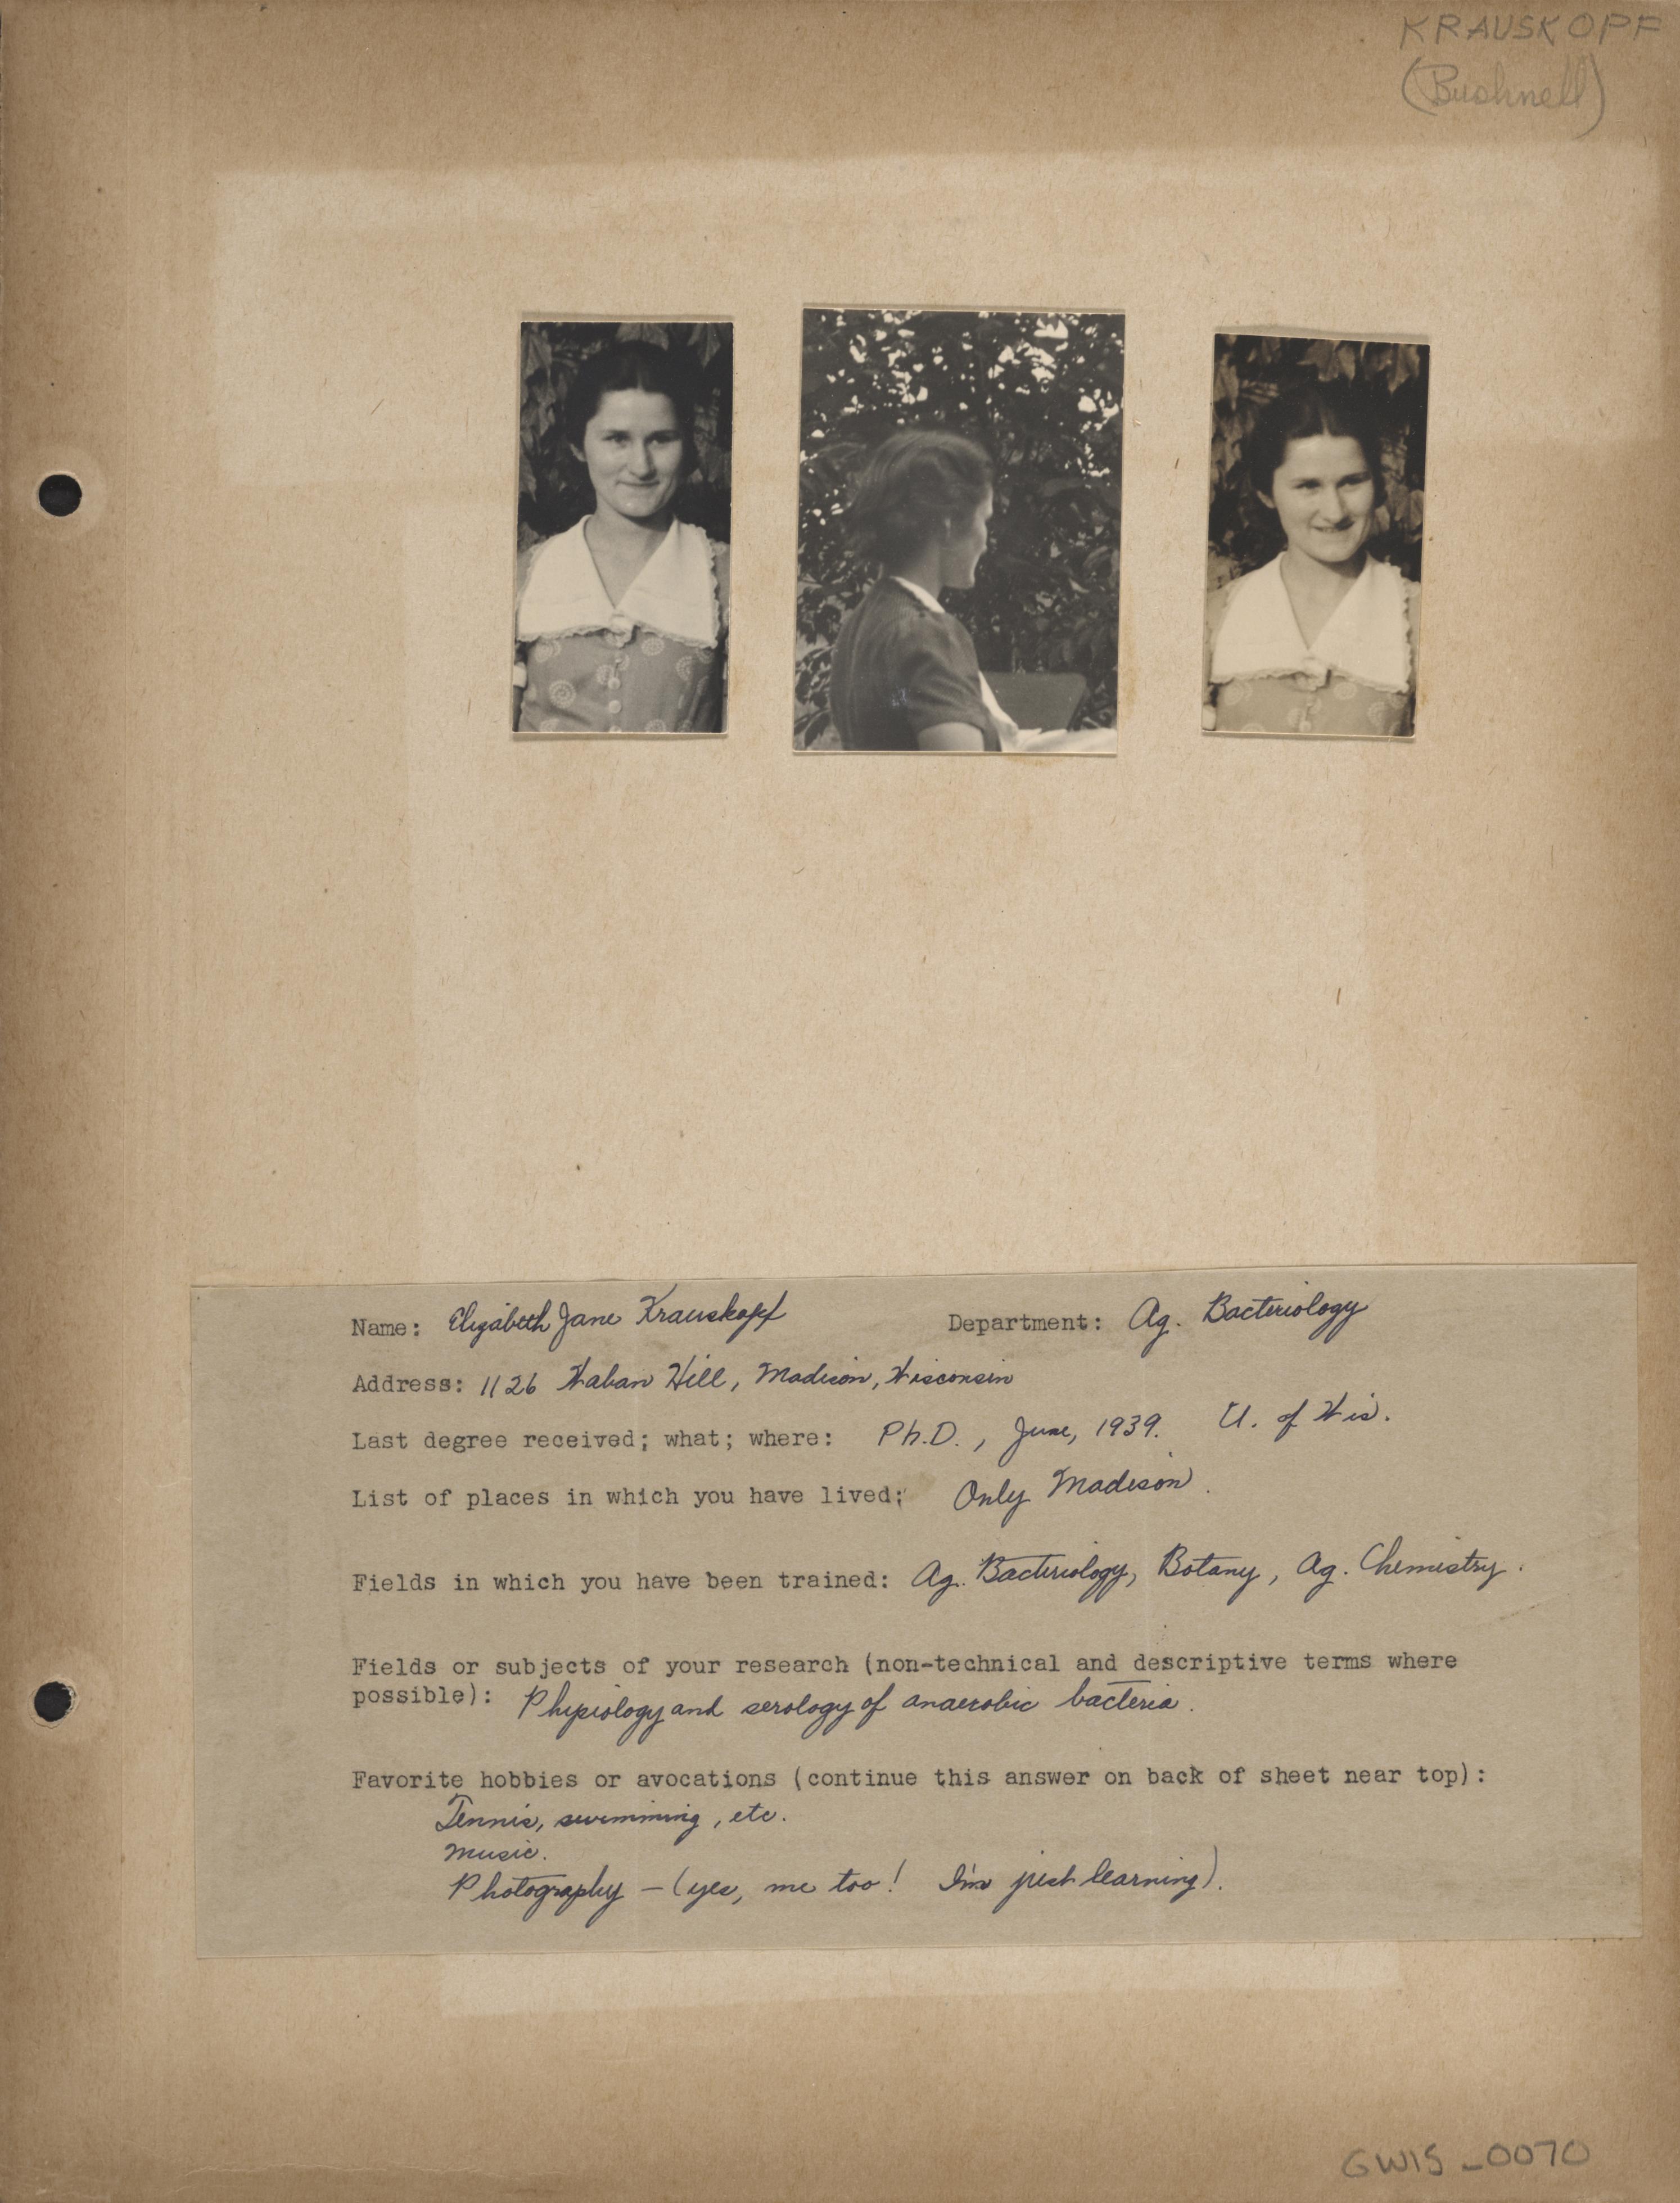 KRAUSKOPF
(Bushnell)
Name: Elizabeth Jane Krauskopf Department: Ag. Bacteriology
Address: 1126 Waban Hill, Madison, Wisconsin
Last degree received; what; where: Ph.D., June, 1939. U. of Wis.
List of places in which you have lived; Only Madison.
Fields in which you have been trained: Ag. Bacteriology, Botany, Ag. Chemistry.
Fields or subjects of your research (non-technical and descriptive terms where
possible): Physiology and serology of anaerobic bacteria.
Favorite hobbies or avocations (continue this answer on back of sheet near top):
Tennis, swimming, etc.
Music.
Photography - (yes, me too! I'm just learning).
GWIS_0070